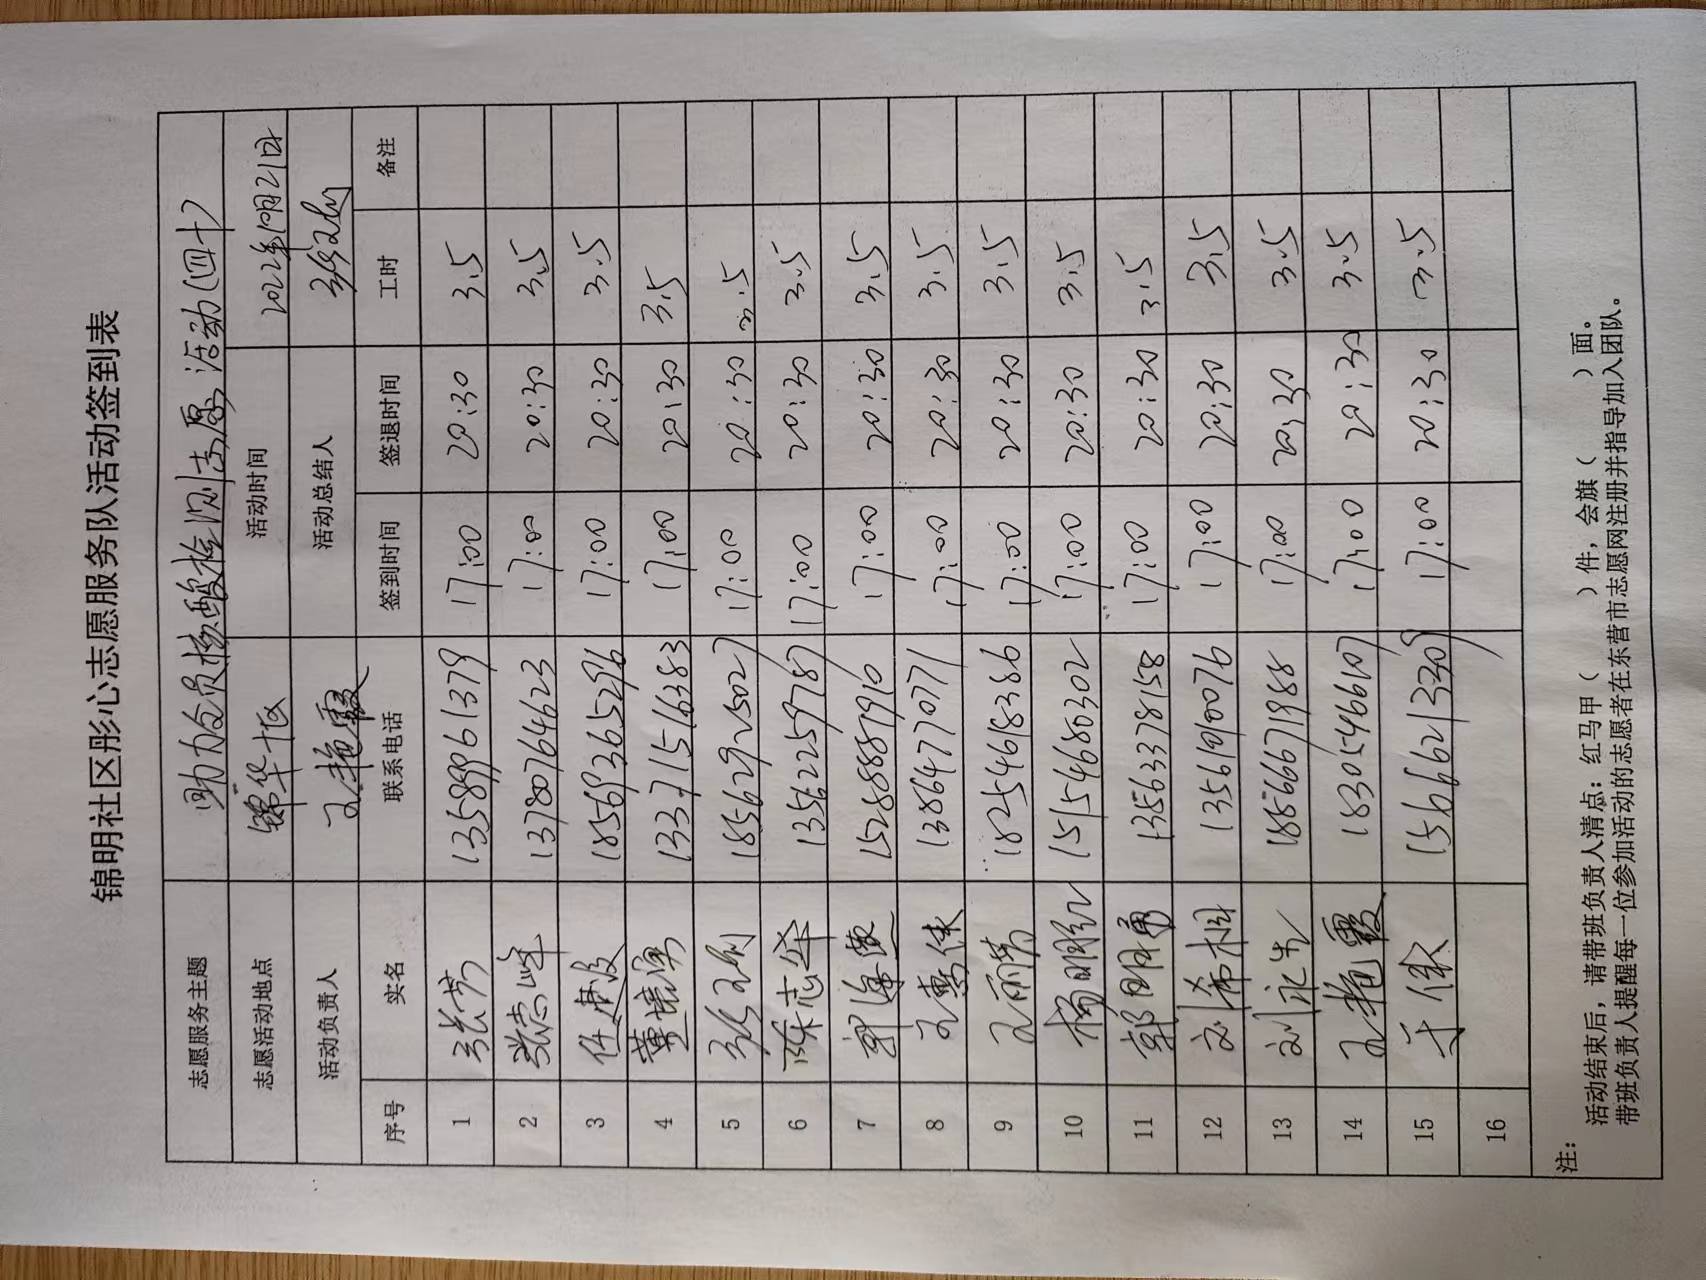 锦明社区彤心志愿服务队活动签到表
志愿服务主题 助力全员核酸检测志愿活动(四十)
志愿活动地点 锦华七区 活动时间 2022年10月21日
活动负责人 王艳霞 活动总结人
序号 实名 联系电话 签到时间 签退时间 工时 备注
1 张芳 13589961379 17:00 20:30 3.5
2 张崇峰 13780764623 17:00 20:30 3.5
3 任 18569365296 17:00 20:30 3.5
4 董 13371516383 17:00 20:30 3.5
5 18562925027 17:00 20:30 3.5
6 陈志华 13562259787 17:00 20:30 3.5
7 郭海 15288887910 17:00 20:30 3.5
8 王 13864770771 17:00 20:30 3.5
9 王丽芳 18254618386 17:00 20:30 3.5
10 杨明红 15154680302 17:00 20:30 3.5
11 郭明勇 13563378158 17:00 20:30 3.5
12 刘希相 13561910076 17:00 20:30 3.5
13 刘永生 18866671988 17:00 20:30 3.5
14 王艳霞 18305466107 17:00 20:30 3.5
15 于 15666213309 17:00 20:30 3.5
16
注: 活动结束后，请带班负责人清点：红马甲（ ）件，会旗（ ）面。
带班负责人提醒每一位参加活动的志愿者在东营市志愿网注册并指导加入团队。